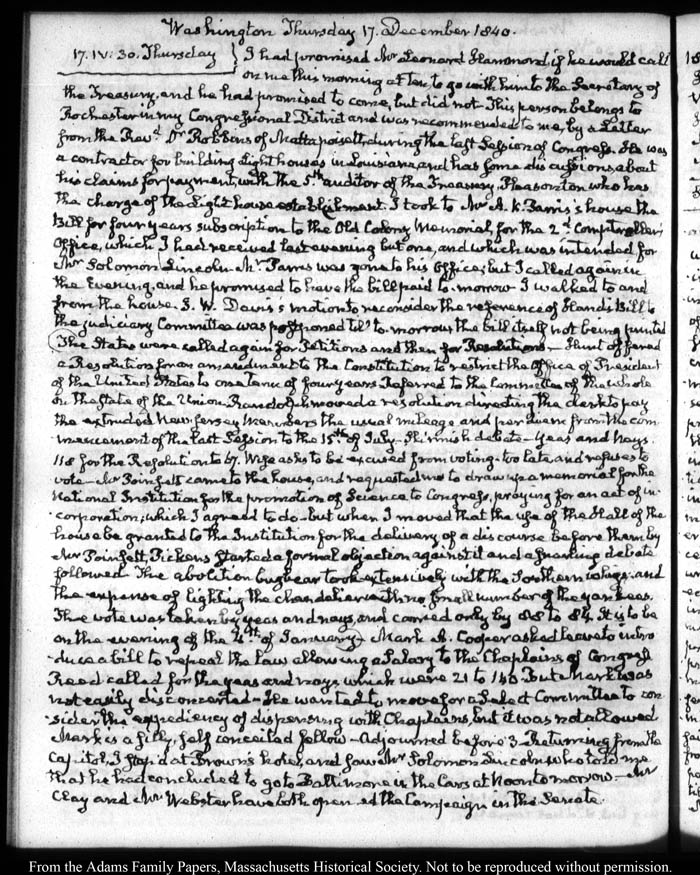 Washington Thursday 17. December 1840.
17. IV: 30. Thursday } I had promised Mr Leonard Hammond, if he would call
on me this morning at ten to go with him to the Secretary of
the Treasury, and he had promised to come, but did not. This person belongs to
Rochester in my Congressional District and was recommended to me, by a Letter
from the Revd. Dr Robbins of Mattapoisett, during the last Session of Congress. He was
a contractor for building Light houses in Louisiana, and has some discussions about
his claims for payment, with the 5th. auditor of the Treasury, Pleasonton who has
the charge of the Light house establishment. I took to Mr A. K. Parris's house the
Bill for four years subscription to the Old Colony Memorial, for the 2d. Comptroller's
Office, which I had received last evening but one, and which was intended for
Mr Solomon Lincoln. Mr. Parris was gone to his Office; but I called again in
the Evening, and he promised to have the bill paid to-morrow. I walked to and
from the house. J. W. Davis's motion to reconsider the reference of Hand's Bill to
the judiciary Committee was postponed till to-morrow, the bill itself not being printed
The States were called again for Petitions and then for Resolutions — Hunt offered
a Resolution for an amendment to the Constitution to restrict the Office of President
of the United States to one term of four years. Referred to the Committee of the whole
on the State of the Union. Randolph moved a resolution directing the clerk to pay
the extruded New Jersey Members the usual mileage and per diem from the com
mencement of the last Session to the 15th of July. Skirmish debate — yeas and nays.
118 for the Resolution to 67. Wise asks to be excused from voting. too late, and refuses to
vote — Mr Poinsett came to the house, and requested me to draw up a memorial for the
National Institution for the promotion of Science to Congress, praying for an act of in-
corporation; which I agreed to do — but when I moved that the use of the Hall of the
house be granted to the Institution for the delivery of a discourse before them by
Mr Poinsett, Pickens started a formal objection against it and a snarling debate
followed. The abolition bugbear took extensively with the Southern whigs; and
the expense of lighting the chandelier with no small number of the yankees.
The vote was taken by yeas and nays, and carried only by 88 to 84. It is to be
on the evening of the 4th. of January — Mark A. Cooper asked leave to intro
duce a bill to repeal the Law allowing a Salary to the Chaplains of Congress
Reed called for the yeas and nays which were 21 to 140. But Mark was
not easily disconcerted — He wanted to move for a Select Committee to con
sider the expediency of dispensing with Chaplains, but it was not allowed
Mark is a silly, self conceited fellow — Adjourned before 3. Returning from the
Capitol, I stop'd at Brown's hotel, and saw Mr Solomon Lincoln who told me
that he had concluded to go to Baltimore in the Cars at Noon to morrow — Mr
Clay and Mr. Webster have both opened the Campaign in the Senate.
From the Adams Family Papers, Massachusetts Historical Society. Not to be reproduced without permission.